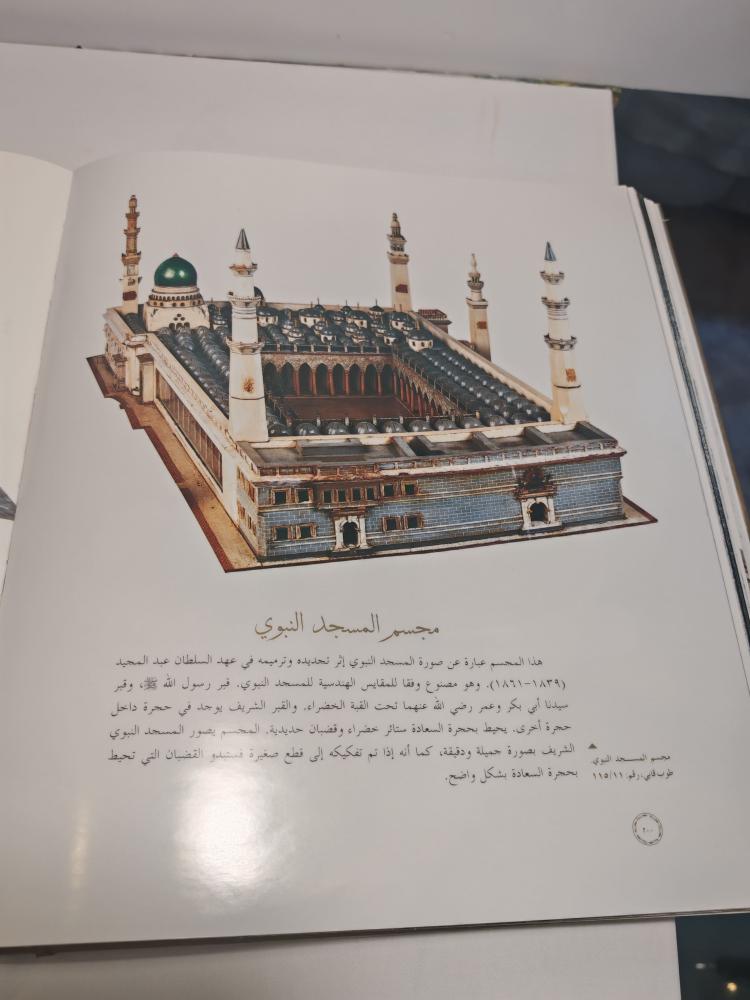 مجسم المسجد النبوي
هذا المجسم عبارة عن صورة المسجد النبوي إثر تجديده وترميمه في عهد السلطان عبد المجيد
(١٨٣٩-١٨٦١). وهو مصنوع وفقا للمقايس الهندسية للمسجد النبوي. قبر رسول الله ﷺ، وقبر
سيدنا أبي بكر وعمر رضي الله عنهما تحت القبة الخضراء. والقبر الشريف يوجد في حجرة داخل
حجرة أخرى. يحيط بحجرة السعادة ستائر خضراء وقضبان حديدية. المجسم يصور المسجد النبوي
الشريف بصورة جميلة ودقيقة، كما أنه إذا تم تفكيكه إلى قطع صغيرة فستبدو القضبان التي تحيط
بحجرة السعادة بشكل واضح.
مجسم المسجد النبوي
طوب قابي، رقم: ١١٥/١١
٢٠٠